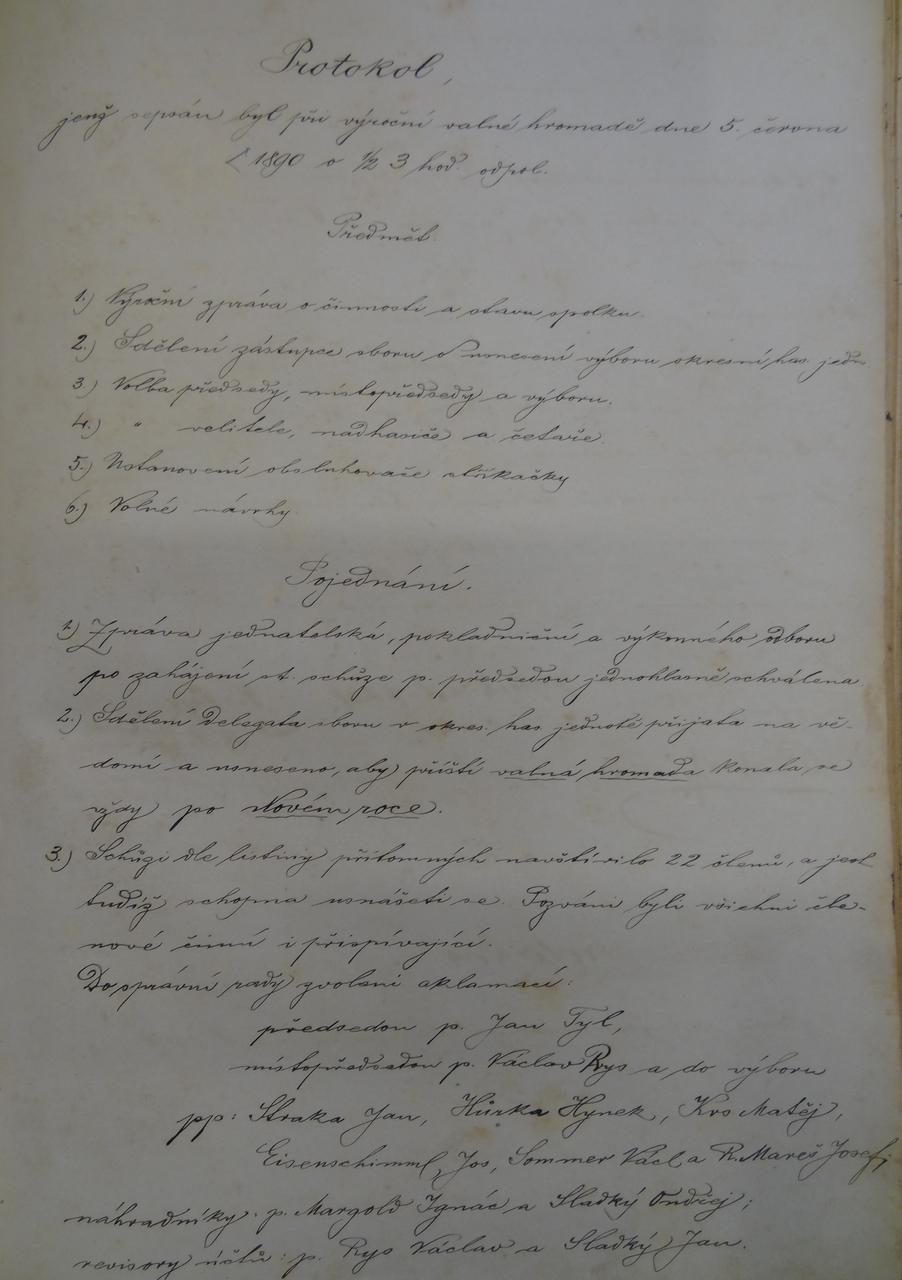 Protokol,
jenž sepsán byl při výroční valné hromadě dne 5. června
1890 o 1/2 3 hod. odpol.
Předmět.
1.) Výroční zpráva o činnosti a stavu spolku.
2.) Sdělení zástupce sboru o usnesení výboru okresní has. jedn.
3.) Volba předsedy, místopředsedy a výboru.
4.) " velitele, nadhasiče a četaře.
5.) Ustanovení obsluhovače stříkačky
6.) Volné návrhy.
Pojednání.
1.) Zpráva jednatelská, pokladniční a výkonného odboru
po zahájení st. schůze p. předsedou jednohlasně schválena.
2.) Sdělení delegata sboru v okres. has. jednotě přijata na vě-
domí a usneseno, aby příští valná hromada konala se
vždy po Novém roce.
3.) Schůzi dle listiny přítomných navštívilo 22 členů, a jest
tudíž schopna usnášeti se. Pozváni byli všichni čle-
nové činní i přispívající.
Do správní rady zvoleni aklamací:
předsedou p. Jan Tyl,
místopředsedou p. Václav Rys a do výboru
pp: Straka Jan, Hůrka Hynek, Krs Matěj,
Eisenschimml Jos, Sommer Václ a R. Mareš Josef;
náhradníky: p. Margold Ignác a Sladký Ondřej;
revisory účtů: p. Rys Václav a Sladký Jan.